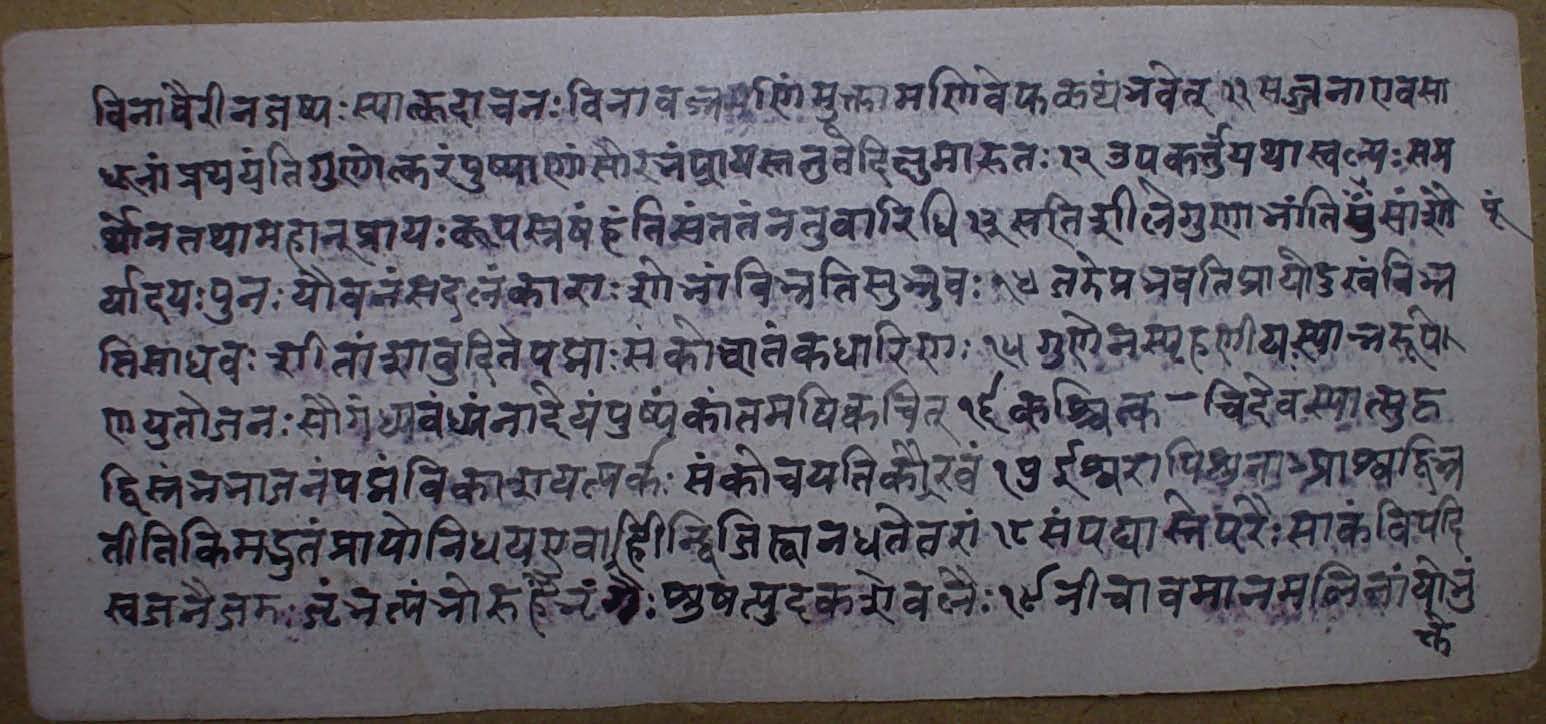 विनावैरीनजय्यःस्यात्कदाचनःविनावज्रमणिंमुक्तामणिर्वेफकथंभवेत् ११ सज्जनाएवसा
धूनांप्रथयंतिगुणोत्करंपुष्पाणांसौरभंप्रायस्तनुतेदिक्षुमारुतः १२ उपकर्त्तुयथास्वल्पःसम
र्थोनतथामहान्प्रायःकूपस्तृषंहंतिसंततंनतुवारिधि १३ सतिशीलेगुणाभांतिपुंसांशौ
र्यादयःपुनःयौवनंसदलंकाराःशोभांबिभ्रतिसुभ्रुवः १४ तदेपभवतिप्रायोदुखंबिभ्र
तिसाधवःशीतांशावुदितेपद्माःसंकोचातंकधारिणः १५ गुणेनस्पृहणीयस्यान्नरूपे
णयुतोजनःसौगंध्यवंध्यंनादेयंपुष्पंकांतमपिक्वचित् १६ कश्चित्क चिदेवस्यात्सुह
द्विस्रंभभाजनंपद्मंविकाशयत्यर्कःसंकोचयतिकैरवं १७ ईश्वराः
तीतिकिमद्भुतंप्रायोनिधयएवाहीन्द्विजिह्वानधतेतरां १८ संपद्यास्तेपरैःसाकंविपदि
स्वजनैर्जडःजृंभत्यंभोरुहंभृंगैःशुषत्युदकशेवलैः १९ नीचावमानमलिनांयोभुं
क्ते
पुं